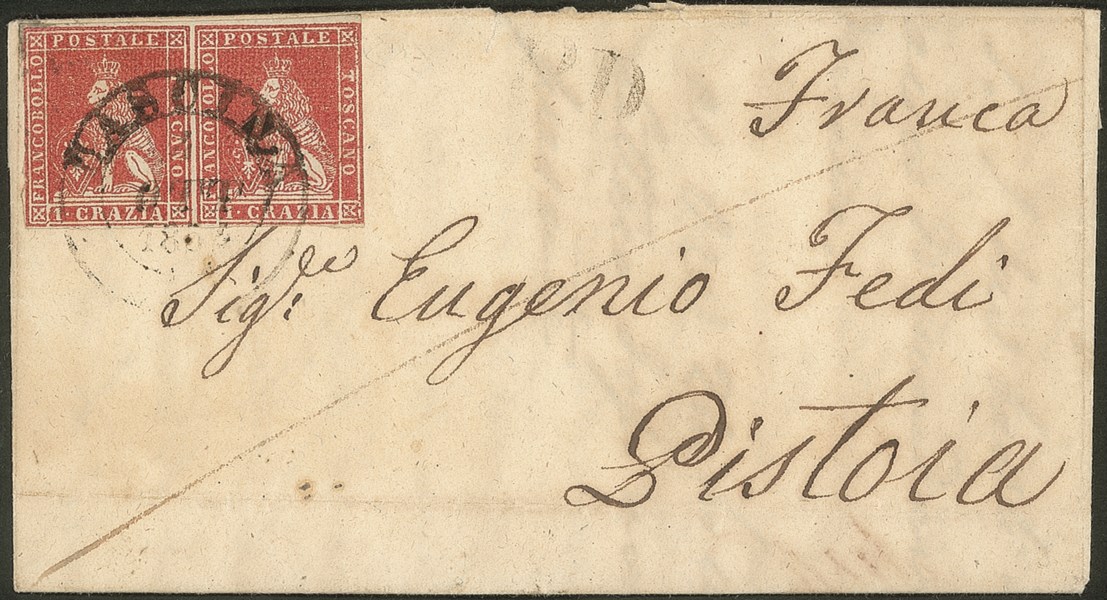 POSTALE POSTALE
FRANCOBOLLO TOSCANO FRANCOBOLLO TOSCANO
1·CRAZIA 1·CRAZIA
PD
Franca
Sig.re Eugenio Fedi
Pistoia